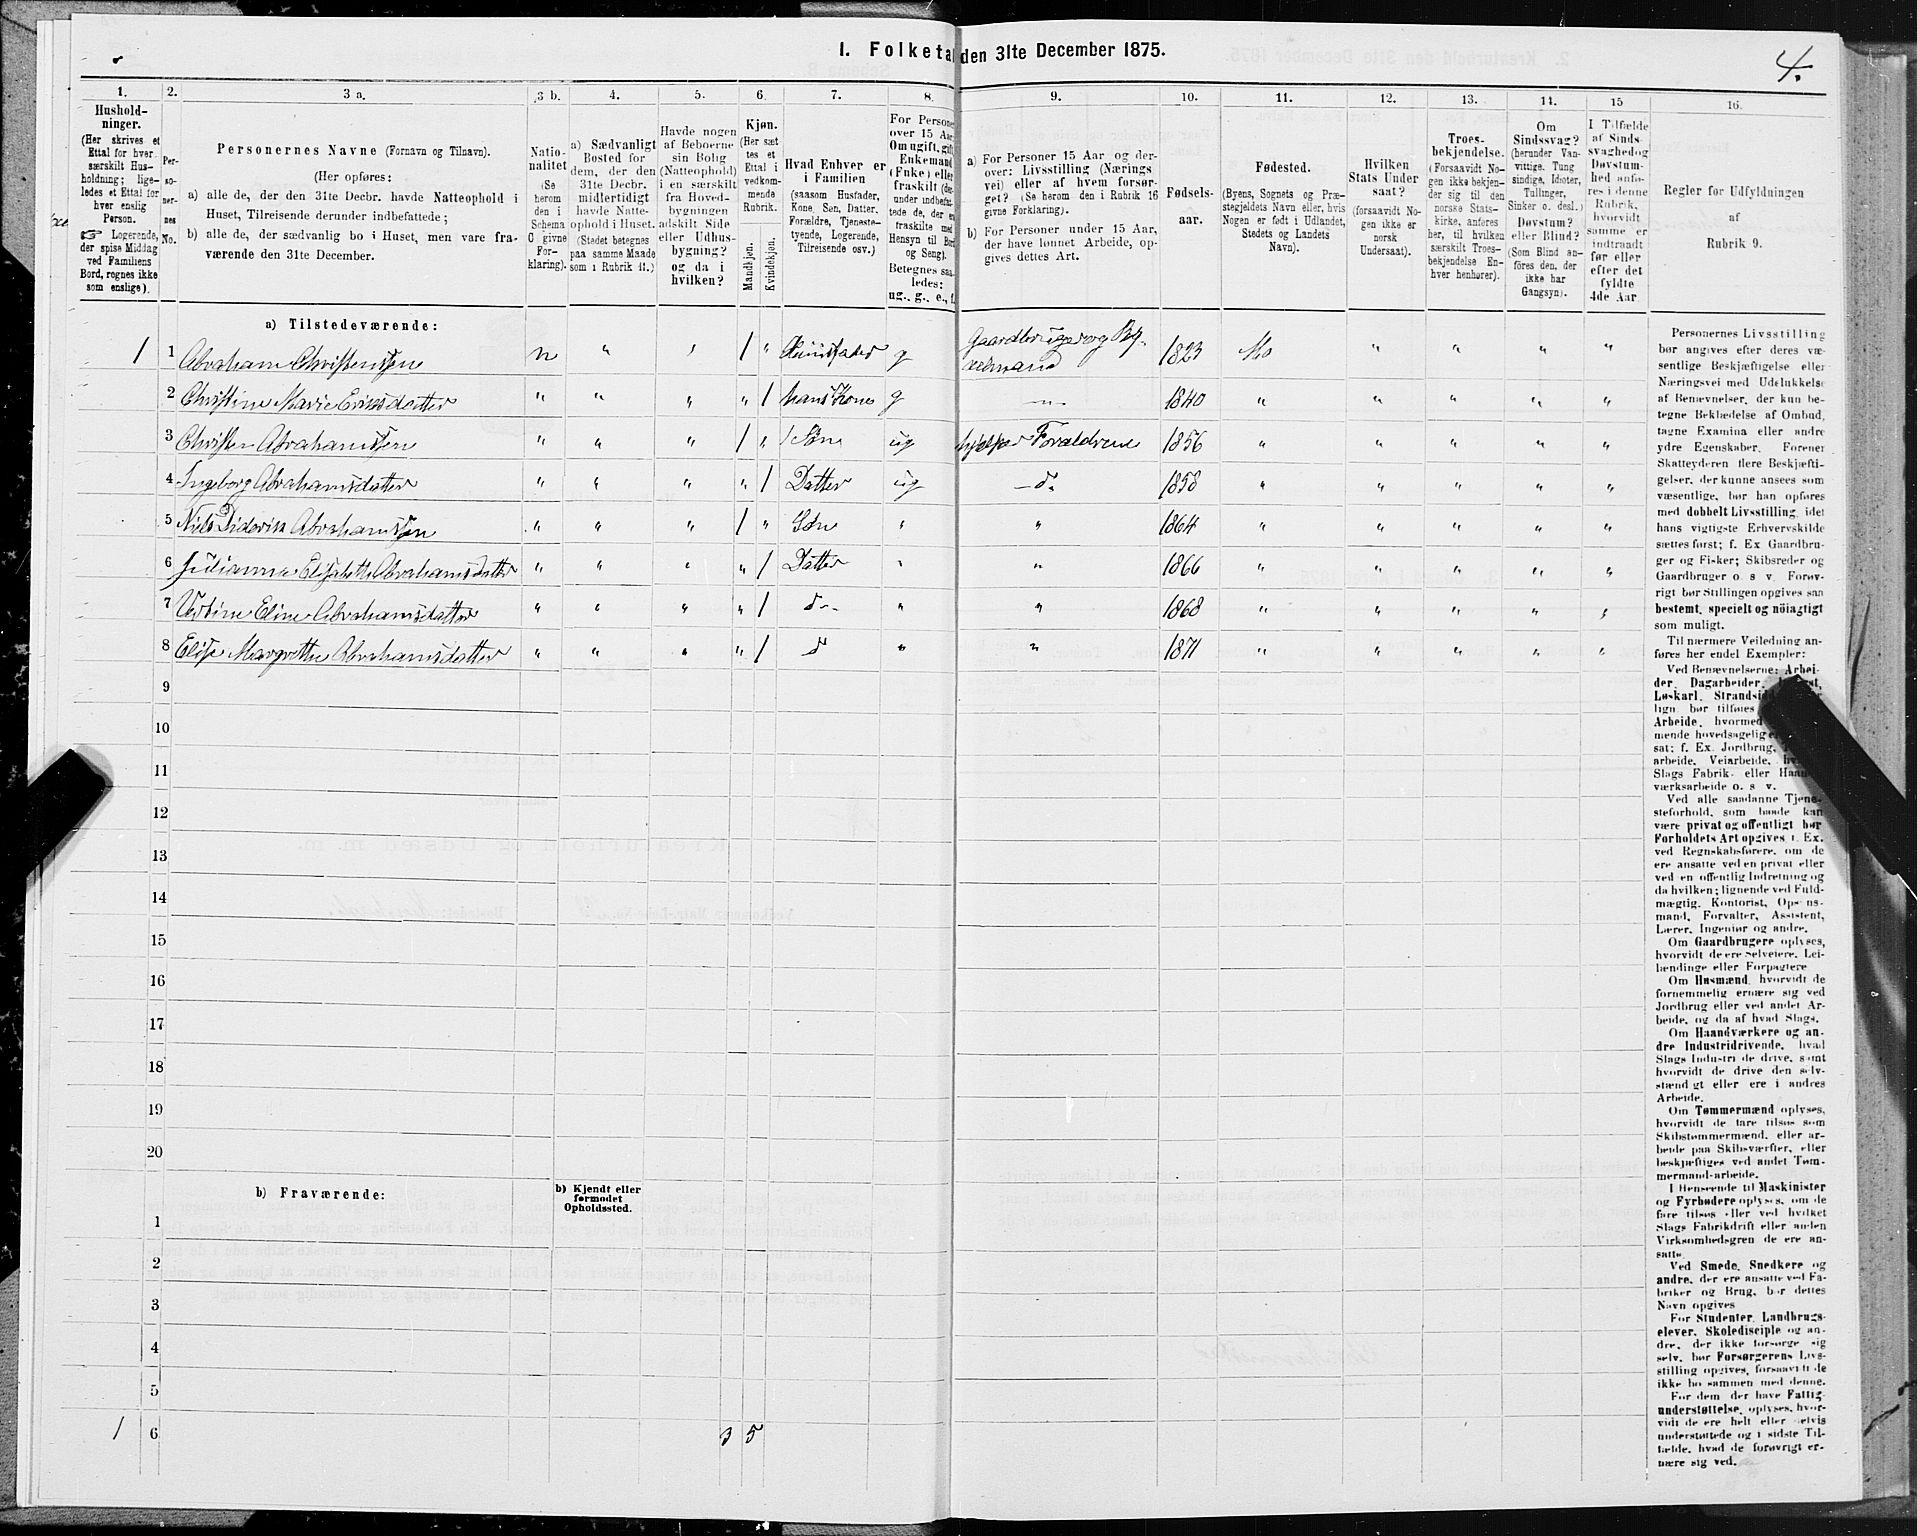 1. Folketa den 31te December 1875.
4.
1. 2. 3 a. 3 b. 4. 5. 6. 7. 8. 9. 10. 11. 12. 13. 14. 15 16.
Hushold-
ninger.
(Her skrives et
Ettal for hver
særskilt Hus-
holdning; lige-
ledes et Ettal for
hver enslig
Person.
☞ Logerende,
der spise Middag
ved Familiens
Bord, regnes ikke
som enslige).
Per-
so-
ner-
nes
No.
Personernes Navne (Fornavn og Tilnavn).
(Her opføres:
a) alle de, der den 31te Decbr. havde Natteophold i
Huset, Tilreisende derunder indbefattede;
b) alle de, der sædvanlig bo i Huset, men vare fra-
værende den 31te December.
Natio-
nalitet
(Se
herom
den i
Schema
C givne
For-
klaring).
a) Sædvanligt
Bosted for
dem, der den
31te Decbr.
midlertidigt
havde Natte-
ophold i Huset.
(Stedet betegnes
paa samme Maade
som i Rubrik 11.)
Havde nogen
af Beboerne
sin Bolig
(Natteophold)
i en særskilt
fra Hoved-
bygningen
adskilt Side
eller Udhus-
bygning?
og da i
hvilken?
Kjøn.
(Her sæt
tes et
Ettal i
vedkom-
mende
Rubrik.
Mandkjøn.
Kvindekjøn.
Hvad Enhver er
i Familien
(saasom Husfader,
Kone, Søn, Datter,
Forældre, Tjeneste-
tyende, Logerende,
Tilreisende osv.)
For Persone
over 15 Aar
Om ugift, gift
Enkemand
(Enke) eller
fraskilt (der-
under indbefat-
tede de, der er
fraskilte med
Hensyn til Bord
og Seng).
Betegnes saa-
ledes:
ug., g., e., f.
a) For Personer 15 Aar og der-
over: Livsstilling (Nærings
vei) eller af hvem forsør-
get? (Se herom den i Rubrik 16
givne Forklaring).
b) For Personer under 15 Aar,
der have lønnet Arbeide, op-
gives dettes Art.
Fødsels-
aar.
Fødested.
(Byens, Sognets og Præ-
stegjeldets Navn eller, hvis
Nogen er født i Udlandet,
Stedets og Landets
Navn).
Hvilken
Stats Under
saat?
(forsaavidt No-
gen ikke er
norsk
Undersaat).
Troes-
bekjendelse.
(Forsaavidt No-
gen ikke bekjen-
der sig til den
norske Stats-
kirke, anføres
her, til hvilket
særskilt Troes-
bekjendelse En-
hver henhører).
Om
Sindssvag?
(herunder Van-
vittige, Tung
sindige, Idioter,
Tullinger,
Sinker o. desl.)
Døvstum?
eller Blind?
(Som Blind an-
føres den, der
ikke har
Gangsyn).
I Tilfælde
af Sinds-
svaghed og
Døvstum-
hed anfø-
res i denne
Rubrik,
hvorvidt
samme er
indtraadt
før eller
efter det
fyldte
4de Aar.
Regler for Udfyldningen
af
Rubrik 9.
a) Tilstedeværende:
1 1 Abraham Christensen n " " 1 " Huusfader g Gaardbruger og By- 1823 Mo " " " "
2 Christine Marie Eriksdatter " " " " 1 hans Kone g —"— 1840 " " " " "
3 Christen Abrahamsen " " " 1 " Søn ug hjelper Forældrene 1856 " " " " "
4 Ingeborg Abrahamsdatter " " " " 1 Datter ug —d— 1858 " " " " "
5 Nils Diderik Abrahamsen " " " 1 " Søn " " 1864 " " " " "
6 Julianne Elisabeth Abrahamsdatter " " " " 1 Datter " " 1866 " " " " "
7 Eline Abrahamsdatter " " " " 1 d— " " 1868 " " " " "
8 Elise Margrethe Abrahamsdatter " " " " 1 d " " 1871 " " " " "
9
10
11
12
13
14
15
16
17
18
19
20
b) Fraværende:
b) Kjendt eller
formodet
Opholdssted.
1
2
3
4
5
1 6 3 5
Personernes Livsstilling
bør angives efter deres væ-
sentlige Beskjæftigelse eller
Næringsvei med Udelukkelse
af Benævnelser, der kun be-
tegne Beklædelse af Ombud,
tagne Examina eller andre
ydre Egenskaber. Forener
Skatteyderen flere Beskjæfti-
gelser, der kunne ansees som
væsentlige, bør han opføres
med dobbelt Livsstilling, idet
hans vigtigste Erhvervskilde
sættes først; f. Ex Gaardbru-
ger og Fisker; Skibsreder og
Gaardbruger o. s v. Forøv-
rigt bør Stillingen opgives saa
bestemt, specielt og nöiagtigt
som muligt.
Til nærmere Veiledning an-
føres her endel Exempler:
Ved Benævnelserne: Arbei-
der, Dagarbeider,
Løskarl, Strandsid
lign. bør tilføres
Arbeide, hvormed
mende hovedsagelig
sat; f. Ex. Jordbrug,
arbeide, Veiarbeide,
Slags Fabrik- eller Haand
værksarbeide o. s v.
Ved alle saadanne Tjene-
steforhold, som baade kan
være privat og offentligt bør
Forholdets Art opgives f. Ex.
ved Regnskabsførere, om de
ere ansatte ved en privat eller
ved en offentlig Indretning og
da hvilken; lignende ved Fuld-
mægtig, Kontorist, Opsyns-
mand, Forvalter, Assistent,
Lærer, Ingeniør og andre.
Om Gaardbrugere oplyses,
hvorvidt de ere Selveiere, Lei-
lændinge eller Forpagtere
Om Husmænd, hvorvidt de
fornemmelig ernære sig ved
Jordbrug eller ved andet Ar-
beide, og da af hvad Slags.
Om Haandværkere og an-
dre Industridrivende, hvad
Slags Industri de drive, samt
hvorvidt de drive den selv-
stændigt eller ere i andres
Arbeide.
Om Tømmermænd oplyses,
hvorvidt de fare tilsøs som
Skibstømmermænd, eller ar-
beide paa Skibsværfter, eller
beskjæftiges ved andet Tøm-
mermand-arbeide.
I Henseende til Maskinister
og Fyrbødere oplyses, om de
fare tilsøs eller ved hvilket
Slags Fabrikdrift eller anden
Virksomhedsgren de ere an-
satte.
Ved Smede, Snedkere og
andre, der ere ansatte ved Fa-
briker og Brug, bør dettes
Navn opgives
For Studenter, Landbrugs-
elever, Skoledisciple og an-
dre, der ikke forsørge sig
selv, bør Forsørgerens Livs-
stilling opgives, forsaavidt de
ikke bo sammen med denne.
For dem der have Fattig-
understøttelse, oplyses, hvor-
vidt de ere helt eller delvis
understøttede og i sidste Til-
fælde, hvad de forøvrigt er-
nære sig ved.